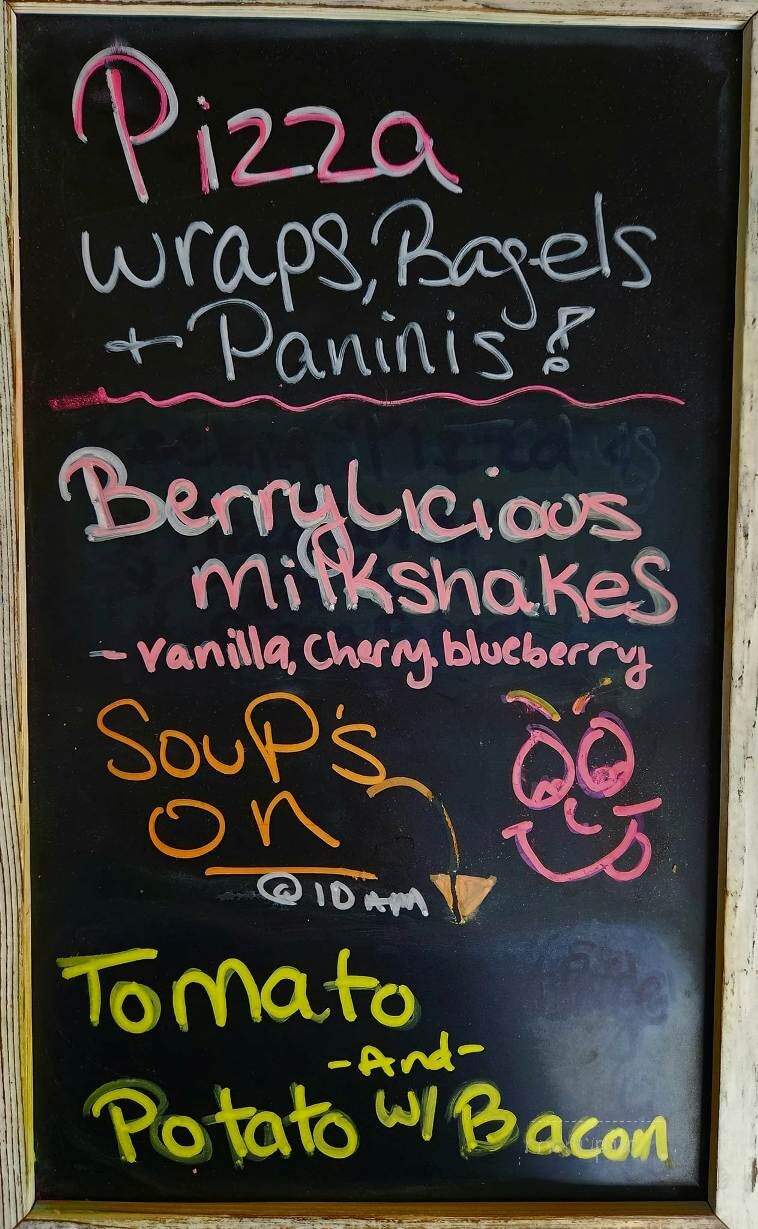 Pizza
wraps, Bagels
+ Paninis!
BerryLicious
milkshakes
- vanilla, cherry, blueberry
Soup's
on
@ 10 AM
Tomato
-And-
Potato w/ Bacon